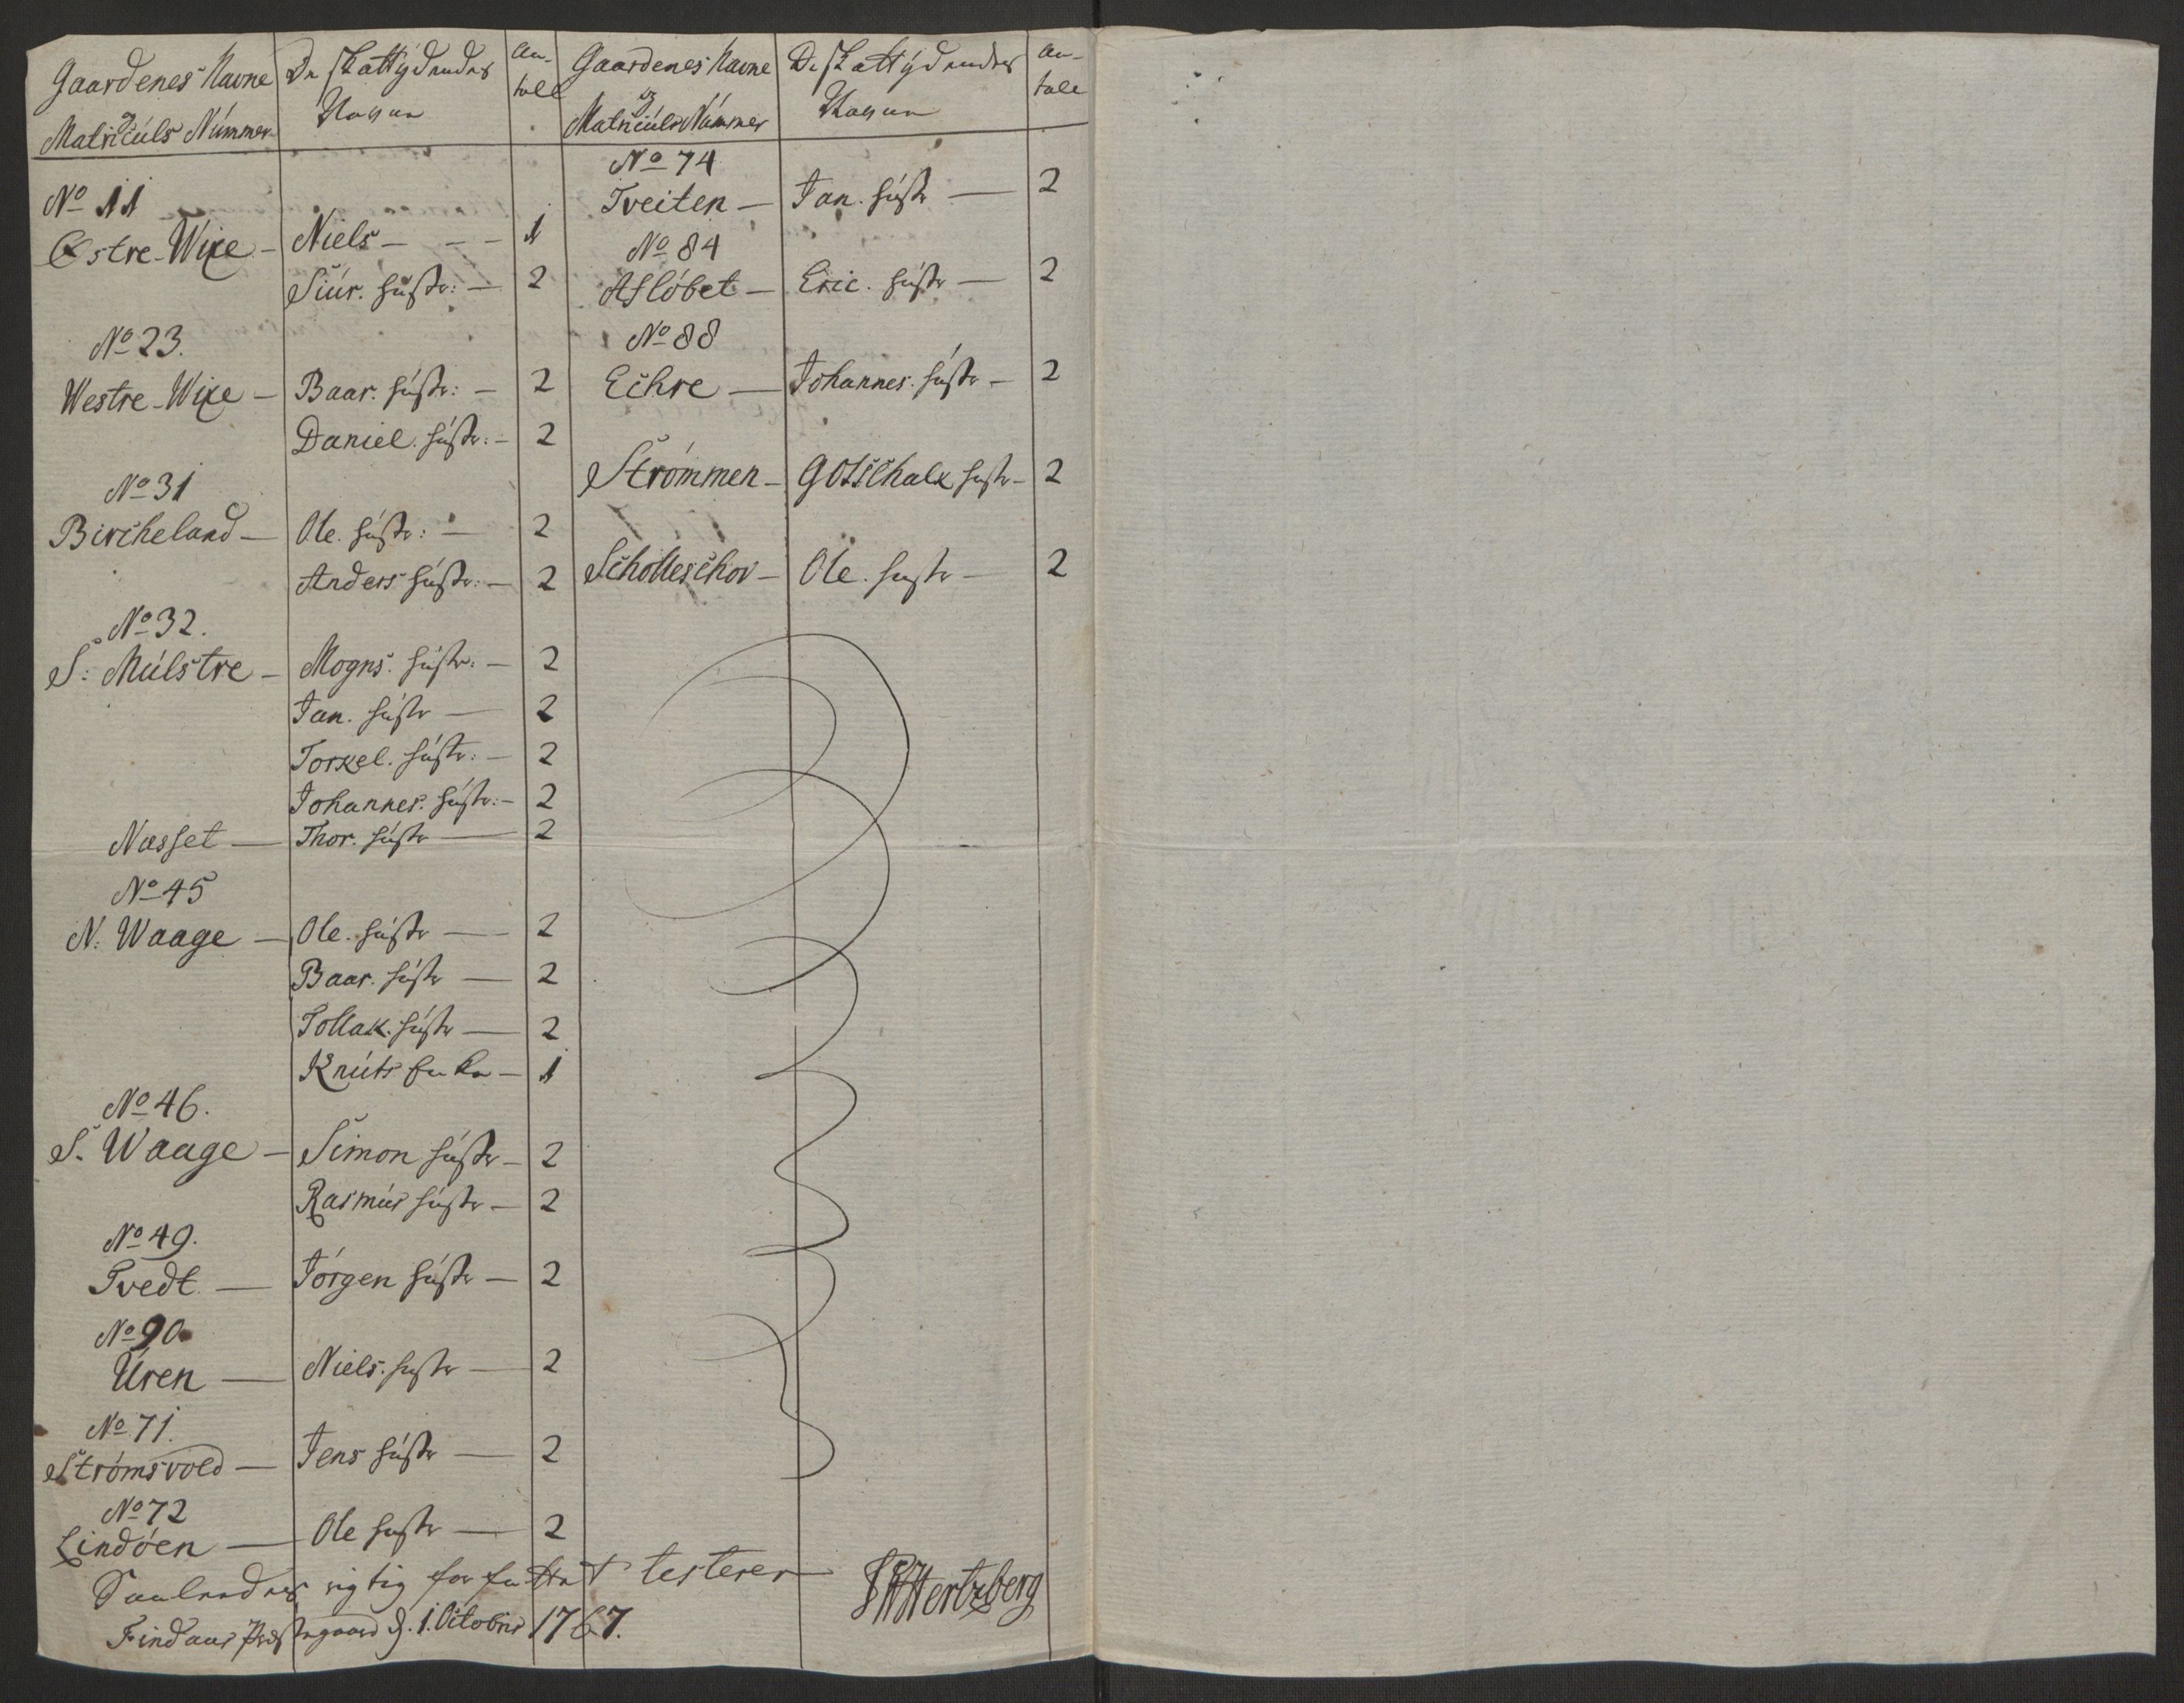 Gaardenes Navne
og
Matriculs Nummer
De skattydendes
Nagun
An-
tall
No 11
Østre-Wixe — Niels — 1
Siur. hustr: — 2
No 23.
Westre-Wixe — Baar. hustr: — 2
Daniel. hustr: — 2
No 31
Bircheland — Ole. hustr: — 2
Anders hustr: — 2
No 32.
S: Mulstre — Mogns. hustr: — 2
Jan. hustr — 2
Torkel. hustr: — 2
Johannes. hustr: — 2
Næsset — Thor. hustr — 2
No 45
N: Waage — Ole. hustr — 2
Baar. hustr — 2
Tollak. hustr — 2
Knuts Enke — 1
No 46.
S. Waage — Simon hustr — 2
Rasmus hustr — 2
No 49.
Tvedt — Jørgen hustr — 2
No 90
Uren — Niels. hustr — 2
No 71.
Strømsvold — Jens hustr — 2
No 72
Lindøen — Ole hustr — 2
Gaardenes Navne
og
Matriculs Nummer
De skattydendes
Nagun
An-
tall
No 74
Tveiten — Jan. hustr — 2
No 84
Afløbet — Eric. hustr — 2
No 88
Echre — Johannes. hustr — 2
Strømmen — Gotschalk hustr — 2
Scholleschov — Ole. hustr — 2
Saaledes rigtig forfattet testerer
Findaas Præstegaard d. 1. Octobris 1767.
Hertzberg